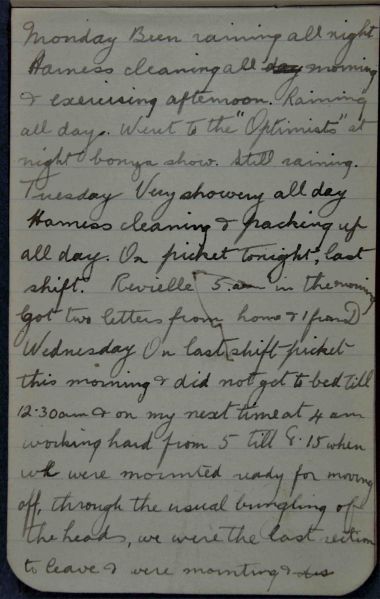 Monday Been raining all night
Harness cleaning all day morning
& exercising afternoon. Raining
all day. Went to the "Optimists" at
night bonza show. Still raining.
Tuesday Very showery all day
Harness cleaning & packing up
all day. On picket tonight, last
shift. Revielle 5.am in the morning
Got two letters from home & 1 friend
Wednesday On last shift picket
this morning & did not get to bed till
12.30am & on my next time at 4 am
working hard from 5 till 8.15 when
we were mounted ready for moving
off, through the usual bungling of
the heads, we were the last section
to leave & were mounting & dis